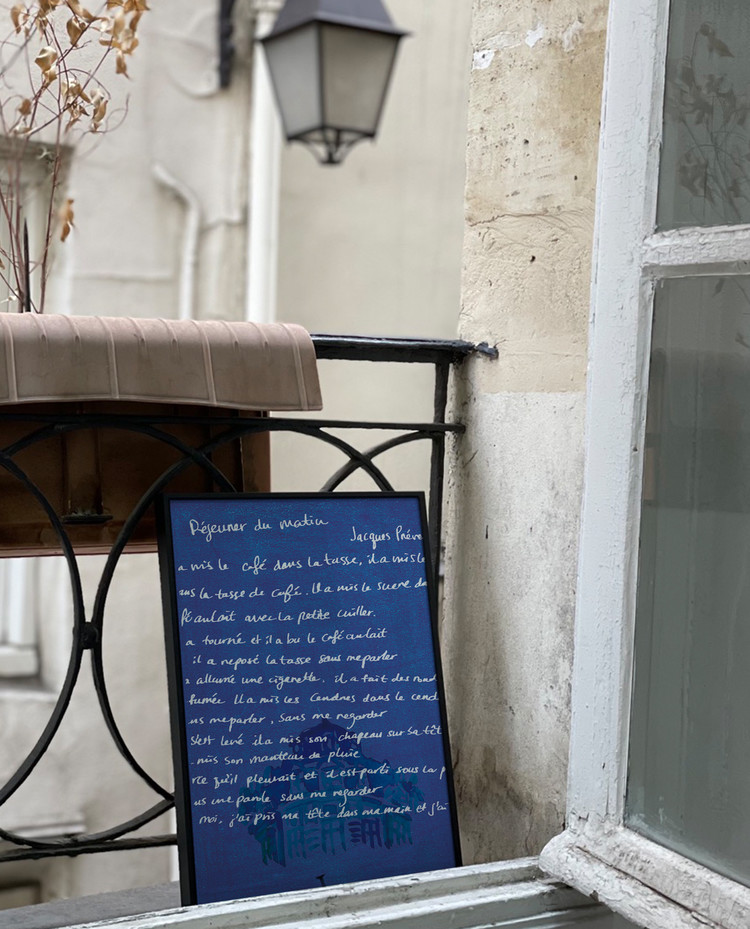 Déjeuner du matin
Jacques Préve
a mis le café dans la tasse, il a mis le
us la tasse de café. Il a mis le sucre da
fé au lait avec la petite cuiller.
a tourné et il a bu le café au lait
il a reposé la tasse sans me parler
a allumé une cigarette. il a fait des rond
fumée Il a mis les Cendres dans le cend
us me parler, sans me regarder
s'est levé il a mis son chapeau sur sa têt
mis son manteau de pluie
rce qu'il pleuvait et il est parti sous la p
us une parole sans me regarder
moi, j'ai pris ma tête dans ma main et j'ai